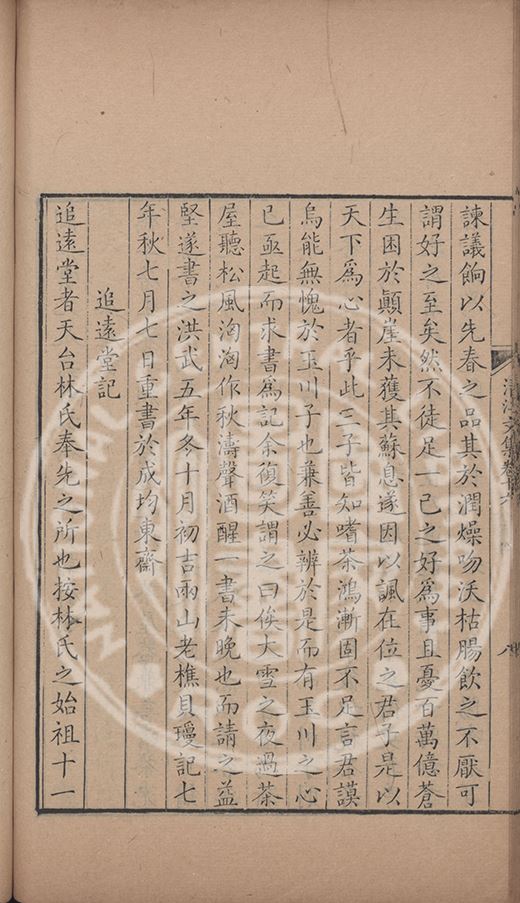 諫議餉以先春之品其於潤燥吻沃枯腸飲之不厭可
謂好之至矣然不徒足一己之好為事且憂百萬億蒼
生困於顛崖未獲其蘇息遂因以諷在位之君子是以
天下為心者乎此三子皆知嗜茶鴻漸固不足言君謨
烏能無愧於玉川子也兼善必辨於是而有玉川之心
已亟起而求書為記余傎笑謂之曰俟大雪之夜過茶
屋聽松風洶洶作秋濤聲酒醒一書未晚也而請之益
堅遂書之洪武五年冬十月初吉兩山老樵貝瓊記七
年秋七月七日重書於成均東齋
追遠堂記
追遠堂者天台林氏奉先之所也按林氏之始祖十一
清江文集卷十六
八